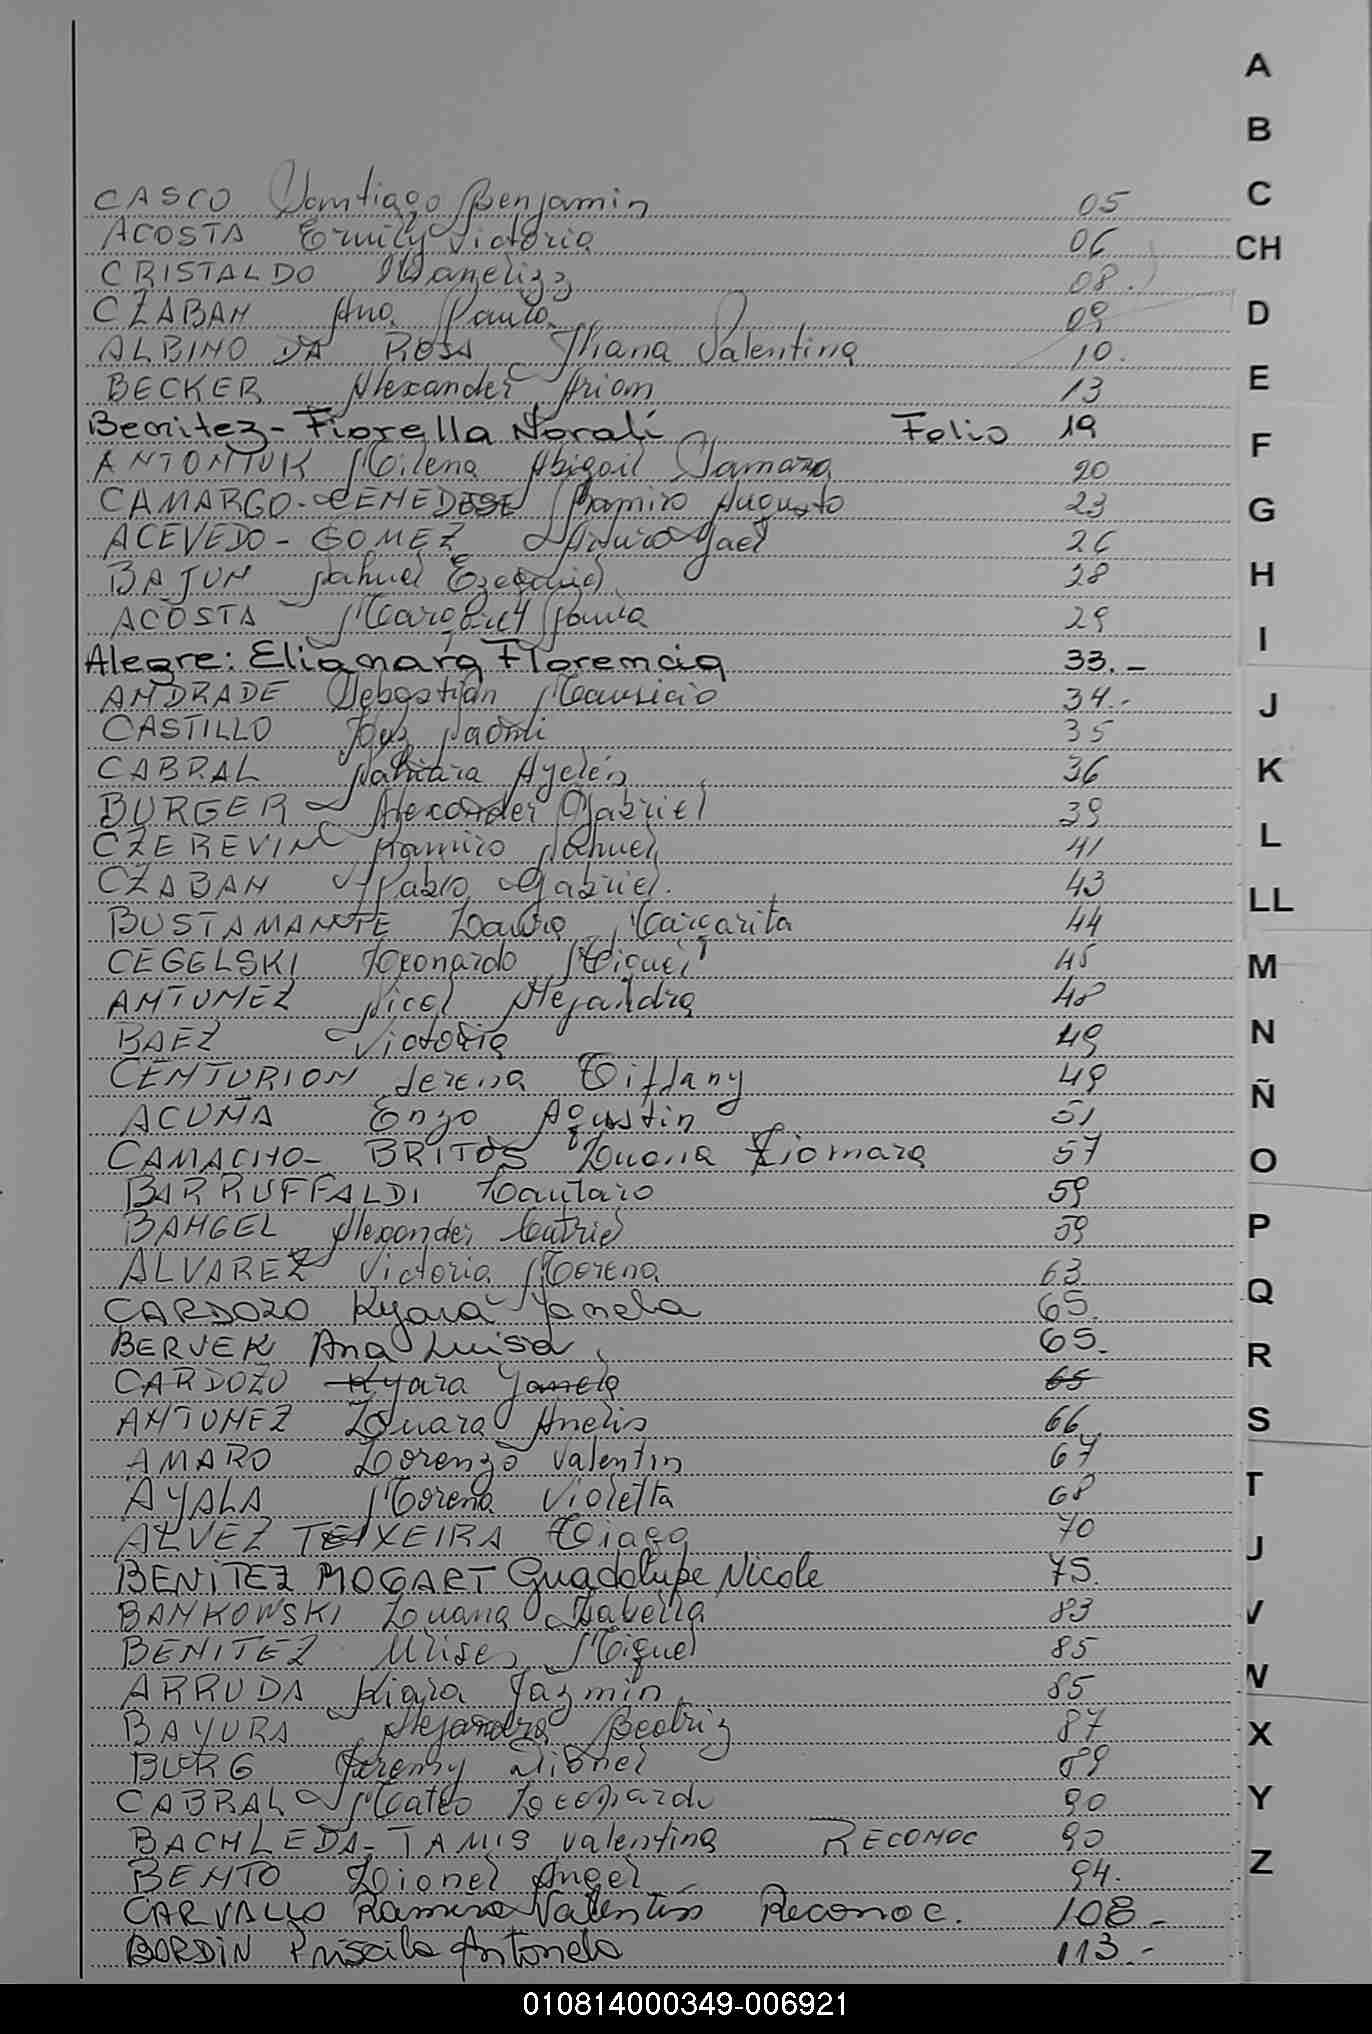 CASCO Santiago Benjamin 05
ACOSTA Emily Victoria 06
CRISTALDO 08.
CZABAN Ana Paula 09
ALBINO DA ROSA Jhana Valentina 10.
BECKER Alexander Arion 13
Benitez - Fiorella Noralí Folio 19
ANTONIUK Milena Abigail Tamara 20
CAMARGO - Ramiro Augusto 23
ACEVEDO - GOMEZ Arturo Yael 26
BAJUN Nahuel Ezequiel 28
ACOSTA Margaret 29
Alegre: Elianara Florencia 33.-
ANDRADE Sebastián Mauricio 34.-
CASTILLO Naomi 35
CABRAL Ayelén 36
BURGER Alexander Gabriel 39
CZEREVIN Ramiro Nahuel 41
CZABAN Pablo Gabriel. 43
BUSTAMANTE Laura Margarita 44
CEGELSKI Leonardo Miguel 45
ANTUNEZ Nicol Alejandra 48
BAEZ Victoria 49
CENTURION Serena Tiffany 49
ACUÑA Enzo Agustin 51
CAMACHO - BRITOS Luana Xiomara 57
BIRRUFFALDI Lautaro 59
BANGEL Alexander Catriel 59
ALVAREZ Victoria Morena 63
CARDOZO Kyara Yanela 65.
BERVEK Ana Luisa 65.
CARDOZO Kyara Yanela 65
ANTUNEZ Luara Anelis 66
AMARO Lorenzo Valentin 67
AYALA Morena Violetta 68
ALVEZ TEIXEIRA Tiago 70
BENITEZ MOGART Guadalupe Nicole 75.
BANKOWSKI Luana Isabella 83
BENITEZ Ulises Miguel 85
ARRUDA Kiara Jazmin 85
BAYURA Alejandra Beatriz 87
BURG Jeremy Lionel 89
CABRAL Mateo Leonardo 90
BACHLEDA - TAMIS Valentina RECONOC 90
BENTO Lionel Angel 94.
CARVALLO Ramiro Valentín Reconoc. 108-
BORDIN Priscila Antonela 113.-
A
B
C
CH
D
E
F
G
H
I
J
K
L
LL
M
N
Ñ
O
P
Q
R
S
T
J
V
W
X
Y
Z
010814000349-006921